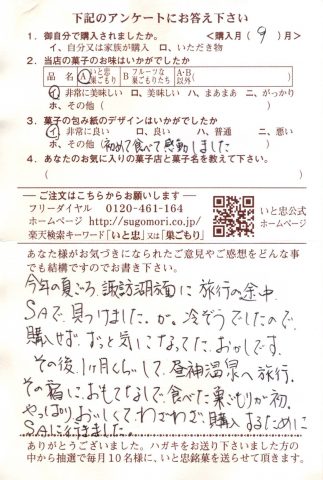 下記のアンケートにお答え下さい
1. 御自分で購入されましたか。 <購入月( 9 )月>
イ、自分又は家族が購入 ロ、いただき物
2. 当店の菓子のお味はいかがでしたか
品名 A いと忠 巣ごもり B フルーツな 巣ごもりたち A・B 以外( )
イ、非常に美味しい ロ、美味しい ハ、まあまあ ニ、がっかり
ホ、その他( )
3. 菓子の包み紙のデザインはいかがでしたか
イ、非常に良い ロ、良い ハ、普通 ニ、悪い
ホ、その他( 初めて食べて感動しました )
4. あなたのお気に入りの菓子店と菓子名を教えて下さい。
( )
ご注文はこちらからお願いします
フリーダイヤル 0120-461-164
ホームページ http://sugomori.co.jp/
楽天検索キーワード「いと忠」又は「巣ごもり」
いと忠公式
ホームページ
あなた様がお気づきになられたご意見やご感想をどんな事
でも結構ですのでお書き下さい。
今年の夏ごろ、諏訪湖方面に旅行の途中、
SAで、見つけました。が。冷ぞうでしたので、
購入せず、ずっと気になってた、おかしです。
その後、1ヶ月くらいして、昼神温泉へ旅行。
その宿に、おもてなしで、食べた巣ごもりが初。
やっぱりおいしくてわざわざ購入するために
SAに行きました。
ありがとうございました。ハガキをお送り下さいました方
の中から抽選で毎月10名様に、いと忠銘菓を送らせて頂きます。